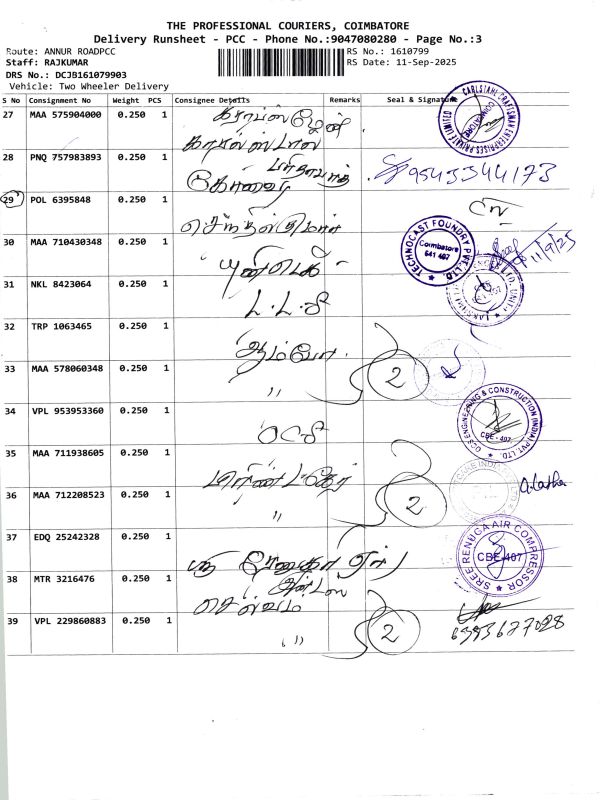 THE PROFESSIONAL COURIERS, COIMBATORE
Delivery Runsheet - PCC - Phone No.:9047080280 - Page No.:3
Route: ANNUR ROADPCC
RS No.: 1610799
Staff: RAJKUMAR
RS Date: 11-Sep-2025
DRS No.: DCJB161079903
Vehicle: Two Wheeler Delivery
S No Consignment No Weight PCS Consignee Details Remarks Seal & Signature
27 MAA 575904000 0.250 1
CARLSTAHL CRAFTSMAN ENTERPRISES PRIVATE LIMITED
COIMBATORE
28 PNQ 757983893 0.250 1
கோவை
9543344173
29 POL 6395848 0.250 1
செந்தில்குமார்
30 MAA 710430348 0.250 1
TECHNOCAST FOUNDRY PVT. LTD.
Coimbatore
641 407
11/9/25
31 NKL 8423064 0.250 1
L.L.
32 TRP 1063465 0.250 1
33 MAA 578060348 0.250 1
"
2
34 VPL 953953360 0.250 1
OCS ENGINEERING & CONSTRUCTION (INDIA) PVT. LTD.
CBE - 407
35 MAA 711938605 0.250 1
36 MAA 712208523 0.250 1
"
2
37 EDQ 25242328 0.250 1
ஸ்ரீ ரேணுகா ஏர்
SREE RENUGA AIR COMPRESSOR
CBE-407
38 MTR 3216476 0.250 1
செல்வம்
39 VPL 229860883 0.250 1
"
2
6393627028